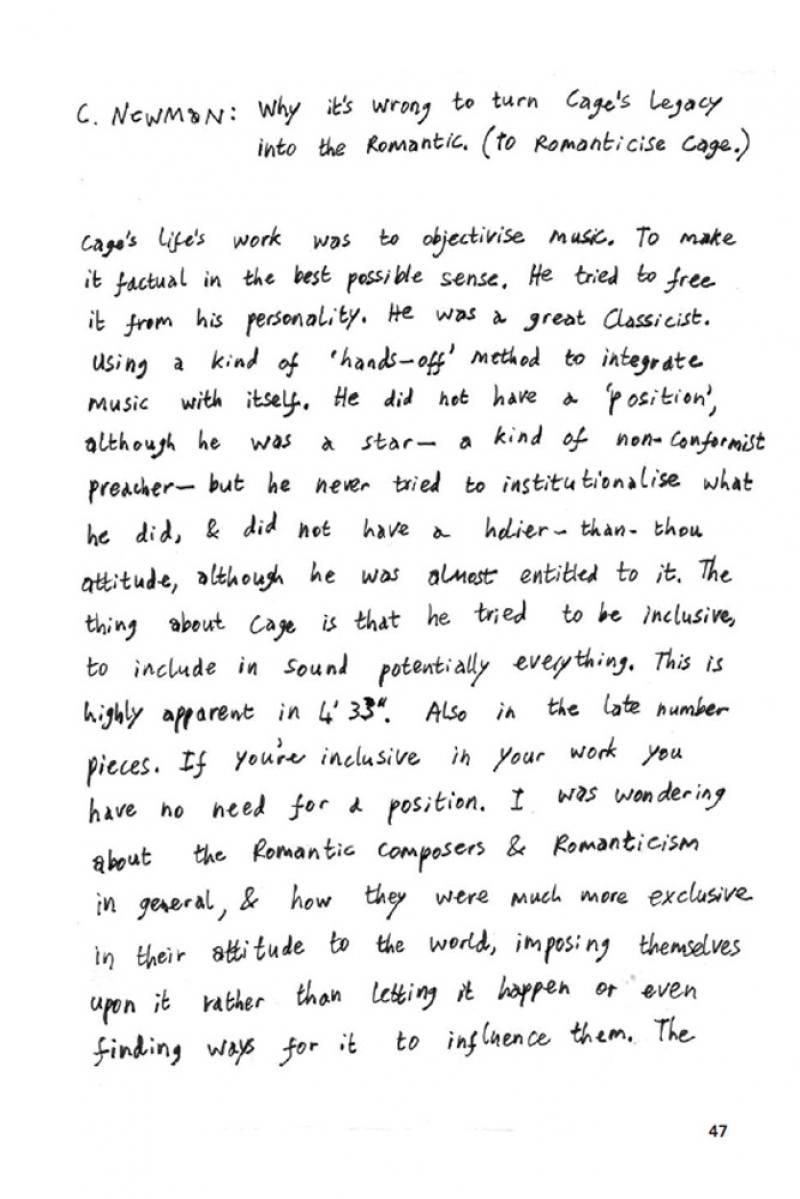 C. NEWMAN: Why it's wrong to turn Cage's Legacy
into the Romantic. (To Romanticise Cage.)
Cage's life's work was to objectivise music. To make
it factual in the best possible sense. He tried to free
it from his personality. He was a great Classicist.
Using a kind of 'hands-off' method to integrate
music with itself. He did not have a 'position',
although he was a star- a kind of non-conformist
preacher- but he never tried to institutionalise what
he did, & did not have a holier-than-thou
attitude, although he was almost entitled to it. The
thing about Cage is that he tried to be inclusive,
to include in sound potentially everything. This is
highly apparent in 4' 33". Also in the late number
pieces. If you're inclusive in your work you
have no need for a position. I was wondering
about the Romantic composers & Romanticism
in general, & how they were much more exclusive
in their attitude to the world, imposing themselves
upon it rather than letting it happen or even
finding ways for it to influence them. The
47